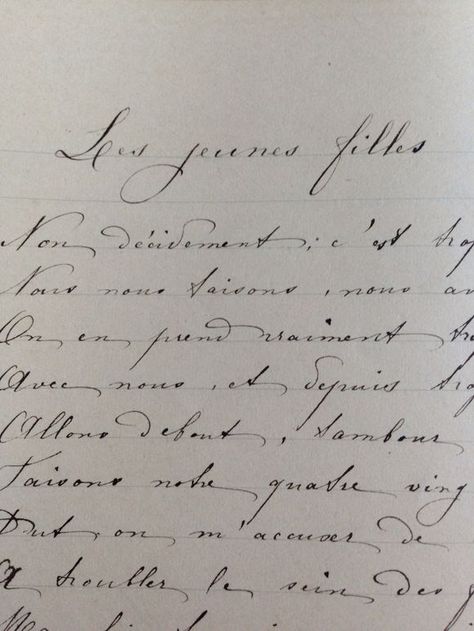 Les jeunes filles
Non décidement, c'est trop
Nous nous taisons, nous av
On en prend vraiment tro
Avec nous, et depuis trop
Allons debout, tambour
Faisons notre quatre ving
Dut on m'accuser de
A troubler le sein des f